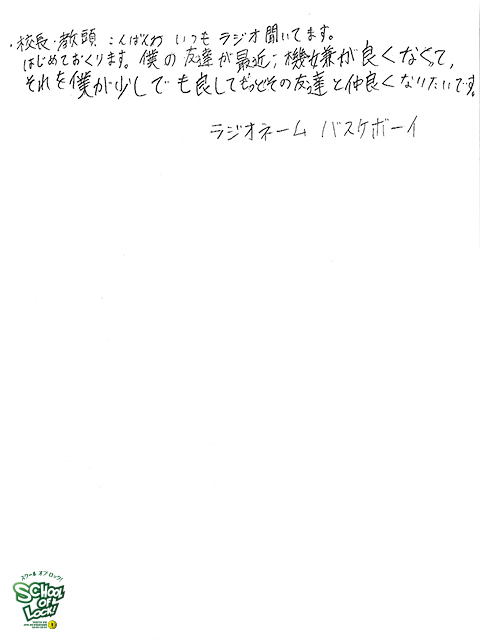 ・校長・教頭 こんばんわ いつも ラジオ聞いてます。
はじめておくります。僕の友達が最近、機嫌が良くなくて、
それを僕が少しでも良してもっとその友達と仲良くなりたいです。
ラジオネーム バスケボーイ
スクール オブ ロック!
SCHOOL
OF
LOCK!